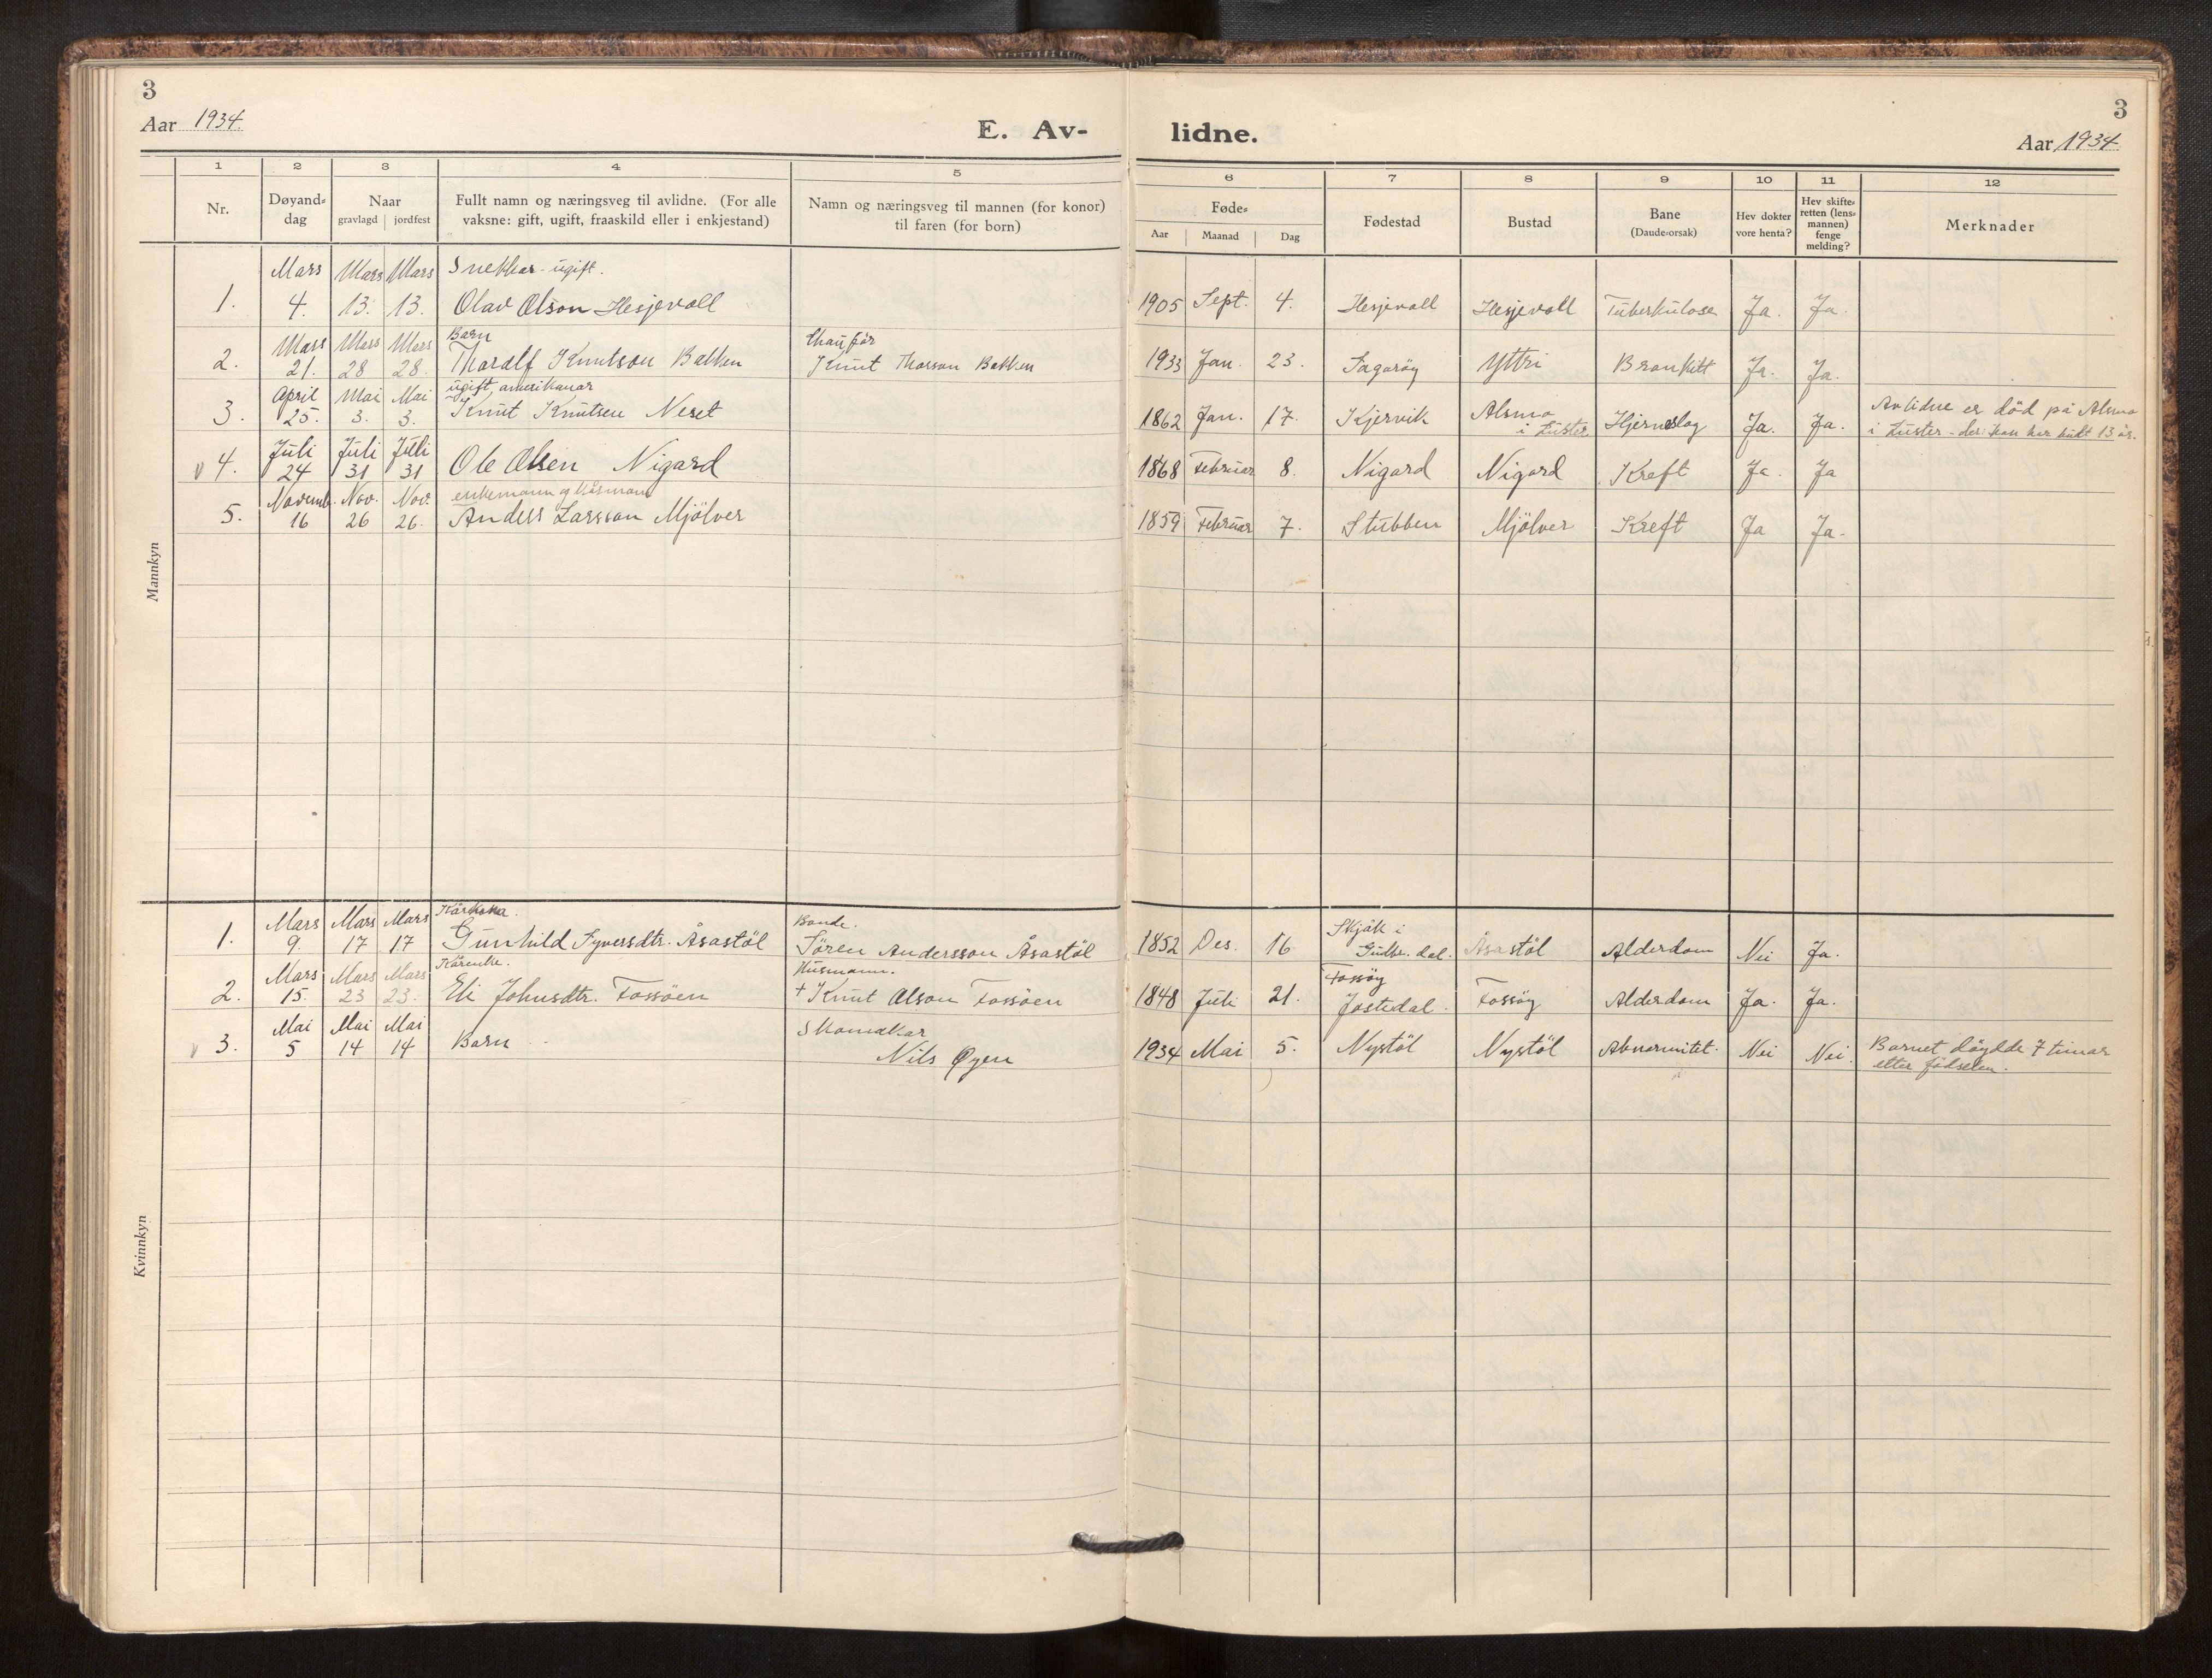 3
Aar 1934.
E. Av-
lidne.
3
Aar 1934
1 2 3 4 5
6 7 8 9 10 11 12
Nr.
Døyand-
dag
Naar
gravlagd jordfest
Fullt namn og næringsveg til avlidne. (For alle
vaksne: gift, ugift, fraaskild eller i enkjestand)
Namn og næringsveg til mannen (for konor)
til faren (for born)
Føde-
Aar Maanad Dag
Fødestad
Bustad
Bane
(Daude-orsak)
Hev dokter
vore henta?
Hev skifte-
retten (lens-
mannen)
fenge
melding?
Merknader
Mannkyn
Mars Mars Mars Snekkar - ugift.
1. 4. 13. 13. Olav Olson Hesjevoll 1905 Sept. 4. Hesjevoll Hesjevoll Tuberkulose Ja. Ja.
Mars Mars Mars Barn Chauför
2. 21. 28 28. Tharalf Knutson Bakken Knut Thorson Bakken 1933 Jan. 23. Fagaröy Yttri Bronkitt Ja. Ja.
April Mai Mai ugift amerikanar
3. 25. 3. 3. Knut Knutsen Neset 1862 Jan. 17. Kjervik Alsmo i Luster Hjerneslag Ja. Ja. Avlidne er död på Alsmo
i Luster - der han har butt 13 år.
Juli Juli Juli
4. 24 31 31 Ole Olsen Nigard 1868 Februar 8. Nigard Nigard Kreft Ja. Ja
Novemb. Nov. Nov. enkemann og
5. 16 26 26. Anders Larsson Mjölver 1859 Februar 7. Stubben Mjölver Kreft Ja Ja.
Kvinnkyn
Mars Mars Mars Kårkona. Bonde. Skjåk i
1. 9. 17 17 Gunhild Syversdtr. Åsastöl Sören Andersson Åsastöl 1852 Des. 16 Gudbr. dal. Åsastöl Alderdom Nei Ja.
Mars Mars Mars Kårenke. Husmann. Fossöy
2. 15. 23 23. Eli Johnsdtr. Fossöen + Knut Olson Fossöen 1848 Juli 21. Jostedal. Fossöy Alderdom Ja. Ja.
Mai Mai Mai Skomakar
3. 5 14 14 Barn Nils Øyen 1934 Mai 5. Nystöl Nystöl Abnormitet. Nei Nei. Barnet döydde 7 timar
etter födselen.